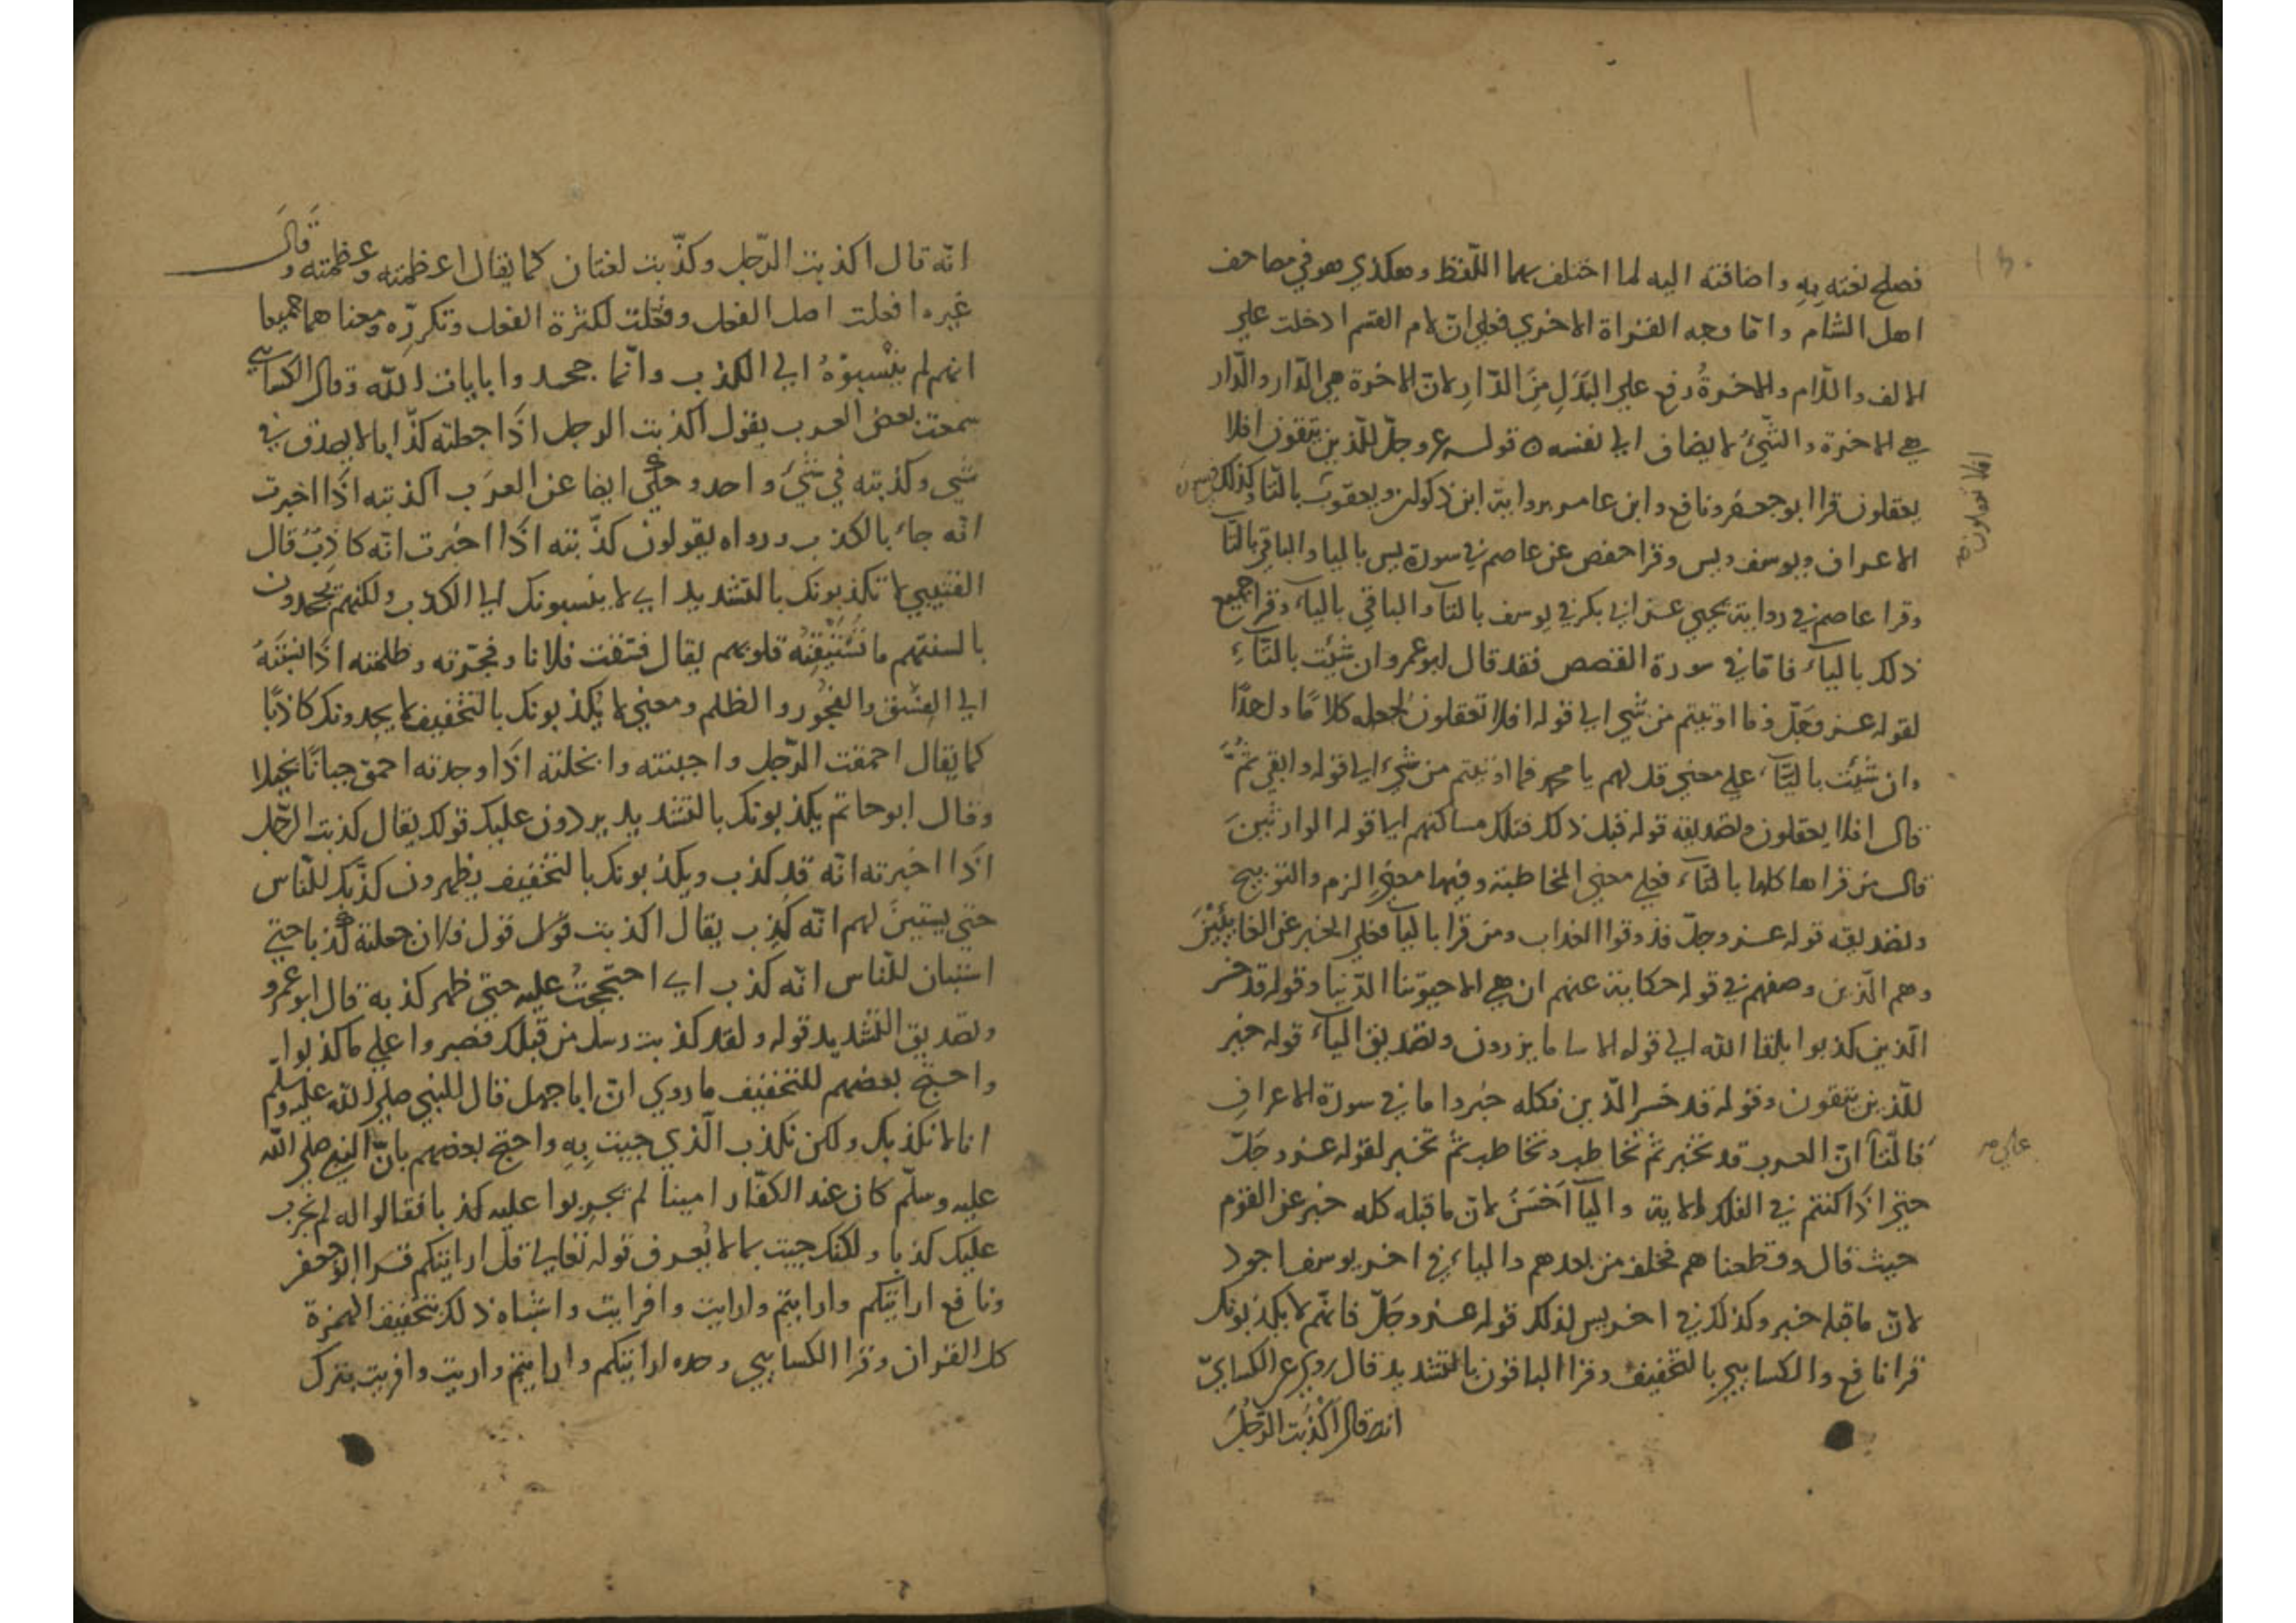 فصلح نعته به واضافته اليه لما اختلف بهما اللّفظ وهكذي هو في مصاحف
اهل الشام وامّا وجه القراة الاخري فعلي انّ لام القسم ادخلت علي
الالف واللّام والاخرةُ رفع علي البَدَلِ مِنَ الدّارِ لانّ الاخرة هي الدّار والدّار
هي الاخرة والشّيُ لا يضاف الي نفسه ٥ قوله عزوجلّ للّذين يتقون افلا
يعقلون قرا ابو جعفر ونافع وابن عامر برواية ابن ذكوان ويعقوب بالتا وكذلك في
الاعراف ويوسف ويس وقرا حفص عن عاصم في سورة يس باليا والباقي بالتا
وقرا عاصم في رواية يحيي عن ابي بكر في يوسف بالتا والباقي بالياء وقرا جميع
ذلك بالياء فامّا في سورة القصص فقد قال ابو عمرو ان شئت بالتّاءِ
لقوله عز وجَلّ وما اوتيتم من شي الي قوله افلا تعقلون لجعله كلامًا واحدًا
وان شئت بالياء علي معني قل لهم يا محمد فما اوتيتم من شيء الي قوله وابقي ثمَّ
قال افلا يعقلون وتصديقه قوله قبل ذلك فتلك مساكنهم الي قوله الوارثينَ
قال من قراها كلها بالتاء فعلي معني المخاطبة وفيها معني الزم والتوبيخ
وتصديقه قوله عز وجلّ فذوقوا العذاب ومن قرا باليا فعلي الخبر عن الغايبين
وهم الّذين وصفهم في قوله حكاية عنهم ان هي الا حيوتنا الدّنيا وقوله قد خسر
الّذين كذبوا بلقا الله الي قوله الا سا ما يزرون وتصديق الياء قوله خير
للّذين يتقون وقوله قد خسر الّذين فكله خبر واما في سورة الاعرافِ
فالتّا انّ العرب قد تخبر ثمّ تخاطب وتخاطب ثمّ تخبر لقوله عز وجَلّ
حتي اذا كنتم في الفلك الاية واليا احسَنُ لانّ ما قبله كله خبر عن القوم
حيث قال وقطعناهم فخلف من بعدهم والياء في اخر يوسف اجود
لانّ ما قبله خبر وكذلك في اخر يس لذلك قوله عز وجَلّ فانّهم لا يكذبونك
قرا نافع والكسايي بالتخفيف وقرا الباقون بالتشديد قال روي عن الكسايّ
انه قال اكذبت الرّجل
افلا تعقلون
علي
انّه قال اكذبت الرّجل وكذّبت لغتان كما يقال اعظمته وعظمته وقال
غيره افعلت اصل الفعل وفعّلت لكثرة الفعل وتكرّره ومعناهما جميعا
انهم لم ينْسبوْهُ الي الكذب وانّما جحدوا بايات الله وقال الكسايي
سمعت بعض العرب يقول اكذبت الرجل اذا جعلته كذّابا لا يصدق في
شي وكذبته في شيْ واحد وحكي ايضا عن العرَب اكذبته اذا اخبرت
انّه جاء بالكذب ورواه يقولون كذّبته اذا اخبرت انّه كاذِبٌ قال
القتيبي لا تكذبونك بالتشديد اي لا ينسبونك الي الكذب ولكنهم يجحدون
بالسنتهم ما تَسْتَيقنُه قلوبهم يقال فسّقت فلانا وفجّرته وظلمته اذا نسَبْتَهُ
الي الفسْق والفجُور والظلم ومعني لا يُكذبونك بالتخفيف لا يجدونك كاذبًا
كما يقال احمقت الرّجل واجبنته وابخلته اذا وجدته احمق جبانًا بخيلا
وقال ابو حاتم يكذبونك بالتشديد يردون عليك قولك يقال كذبت الرّجل
اذا اخبرته انّه قد كذب ويكذبونك بالتخفيف يظهرون كذْبك للنّاس
حتي يستبينَ لهم انّه كَذِب يقال اكذبت قول فلان جعلته كذبا حتي
استبان للنّاس انّه كذب اي احتججتُ عليه حتي ظهر كذبه قال ابو عمرو
وتصديق التشديد قوله ولقد كذبت رسل من قبلك فصبروا علي ما كذبوا
واحتجّ بعضهم للتخفيف ما روي انّ ابا جهل قال للنبي صلي الله عليه وسلم
انا لا نكذبك ولكن نكذب الّذي جيت بِهِ واحتج بعضهم بانّ النبي صلي الله
عليه وسلّم كان عند الكفّار امينا لم يجربوا عليه كذبا فقالوا له لم نجرب
عليك كذبا ولكنك جيت بما لا نُعرف قوله تعالي قل ارايتكم قرا ابو جعفر
ونافع ارايتكم وارايتم وارايت وافرايت واشباه ذلك بتخفيف الهمزة
كل القران وقرا الكسايي وحده اريتكم واريتم واريت وافريت بترك